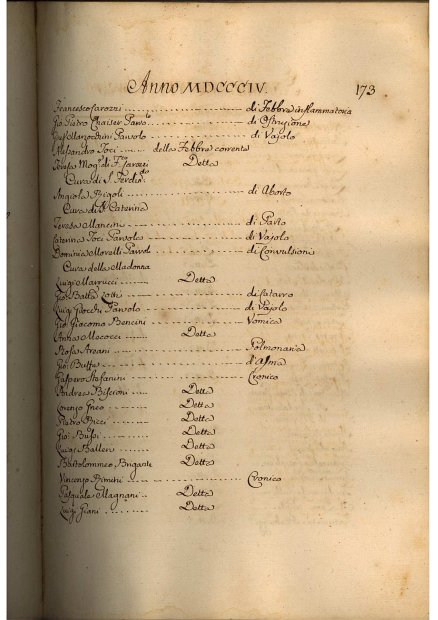 Anno MDCCCIV. 173
Francesco Sarozzi di Febbre inflammatoria
Gio Pietro Chaiser Parv.lo di Ostruzione
Gius Marzocchini Parvolo di Vajolo
Alesandro Toci della Febbre corrente
Teresa Mog. di F. Sarozzi Detta
Cura di S. Ferdin.do
Angiola Brigoli di Aborto
Cura di S. Caterina
Teresa Mancini di Parto
Caterina Toci Parvola di Vajolo
Dominica Morelli Parvol. di Convulsioni
Cura della Madonna
Luigi Marrucci Detta
Gio: Batta di Catarro
Luigi Parvolo di Vajolo
Gio: Giacomo Bencini Vomica
Mecocci Detta
Rosa Areani Polmonaria
Gio: Buffa d'Asma
Gaspero Stefanini Cronico
Andrea Biscioni Detta
Lorenzo Detta
Pietro Bizzi Detta
Gio: Bussi Detta
Luigi Balleri Detta
Bartolommeo Brigante Detta
Vincenzo Bimini Cronico
Pasquale Magnani Detta
Luigi Giani Detta